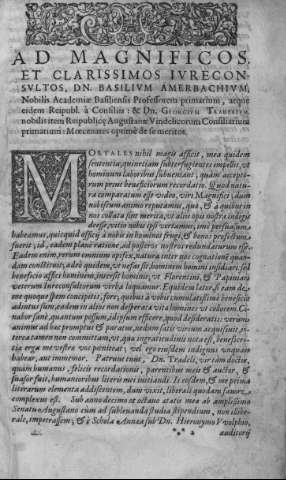 AD MAGNIFICOS,
ET CLARISSIMOS IVRECON
SVLTOS, DN. BASILIVM AMERBACHIVM,
Nobilis Academiæ Basiliensis Professorem primarium, atque
eidem Reipubl. à Consiliis: & Dn. GEORGIVM
nobilis item Reipublicæ Augustanæ Vindelicorum Consiliarium
primarium: Mœcenates optimè de se meritos.
MORTALES nihil magis afficit, mea quidem
sententia, quàm
hominum laboribus subueniant, quàm accepto-
rum prius beneficiorum recordatio. Quod natura
comparatum est video, viri Magnifici, dum
nobiscum animo reputamus, quæ, & à quibus in
nos collata sint merita,
habeamus, quicquid officij à nobis in homines frugi, & bonos profectum
fuerit, id, eadem planè ratione, ad posteros nostros redundaturum esse.
Eadem enim, rerum omnium opifex, natura inter nos cognationẽ quan-
dam constituit, adeò quidem, vt nefas sit, hominem homini insidiari: sed
beneficio affici hominem, interesse hominis, vt Florentini, & Papiniani
veterum Iureconsultorum verba loquamur. Equidem fateor, si eam de
me quoque spem concepistis, fore, quibus à vobis cumulatissimè beneficiis
adiutus sum, eadem in alios non desperatæ vitæ homines vt collocem. Co-
nabor sanè, quantum possum, id ipsum efficere, quod desideratis: verùm
animus ad hæc promptus & paratus, nedum satis virium acquisiuit.
terea tamen non committam, vt quæ ingratitudinis nota est, beneficio-
rum erga me vestrûm vos pœniteat, vel ego eiusdem indignus vnquam
habear, aut immemor. Patruus tuus, Dn. Tradelli, vir tam doctus,
quàm humanus, felicis recordationis, parentibus meis & auctor, &
suasor fuit, humanioribus literis me initiandi. Is eosdem, & me prima
literarum elementa addiscentem, dum vixit, liberali quodam fauore
complexus est. Sub anno decimo & octauo ætatis meæ ab amplissimo
Senatu Augustano cùm ad subleuanda studia stipendium, non illiberale,
impetrassem, & è Schola Annæa sub Dn. Hieronymo Vvolphio,
auditorij